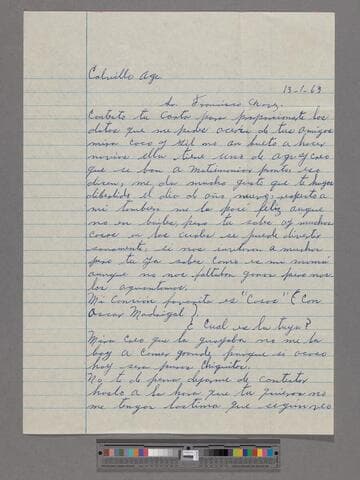 Calvillo Ags
13-1-63
Sr. Francisco Chavez.
Contesto tu Carta para proporcionarte los
datos que me pides acerca de tus amigos
mira Coco y Gil no an buelto a hacer
novios ella tiene uno de ags y creo
que se ban a Matrimoniar pronto eso
dicen, me da mucho gusto que te hayas
dibertido el día de año nuevo respecto a
mi tambien me la pasé feliz aunque
no en baile, pero tu sabes ay muchas
cosas en las cuales se puede divertir
sanamente; si nos invitaron a muchas
pero tu ya sabes como es mi mamá
aunque no nos faltaban ganas pero nos
las aguantamos.
Mi Canción favorita es "Cosas" (Con
Oscar Madrigal).
¿ Cual es la tuya?
Mira Creo que la guayaba no me la
boy a comer grande, porque si acaso
hay sera puras Chiquitas.
No te de pena dejarme de contestar
hasta a la hora que tu quieras no
me tengas lastima que segun veo